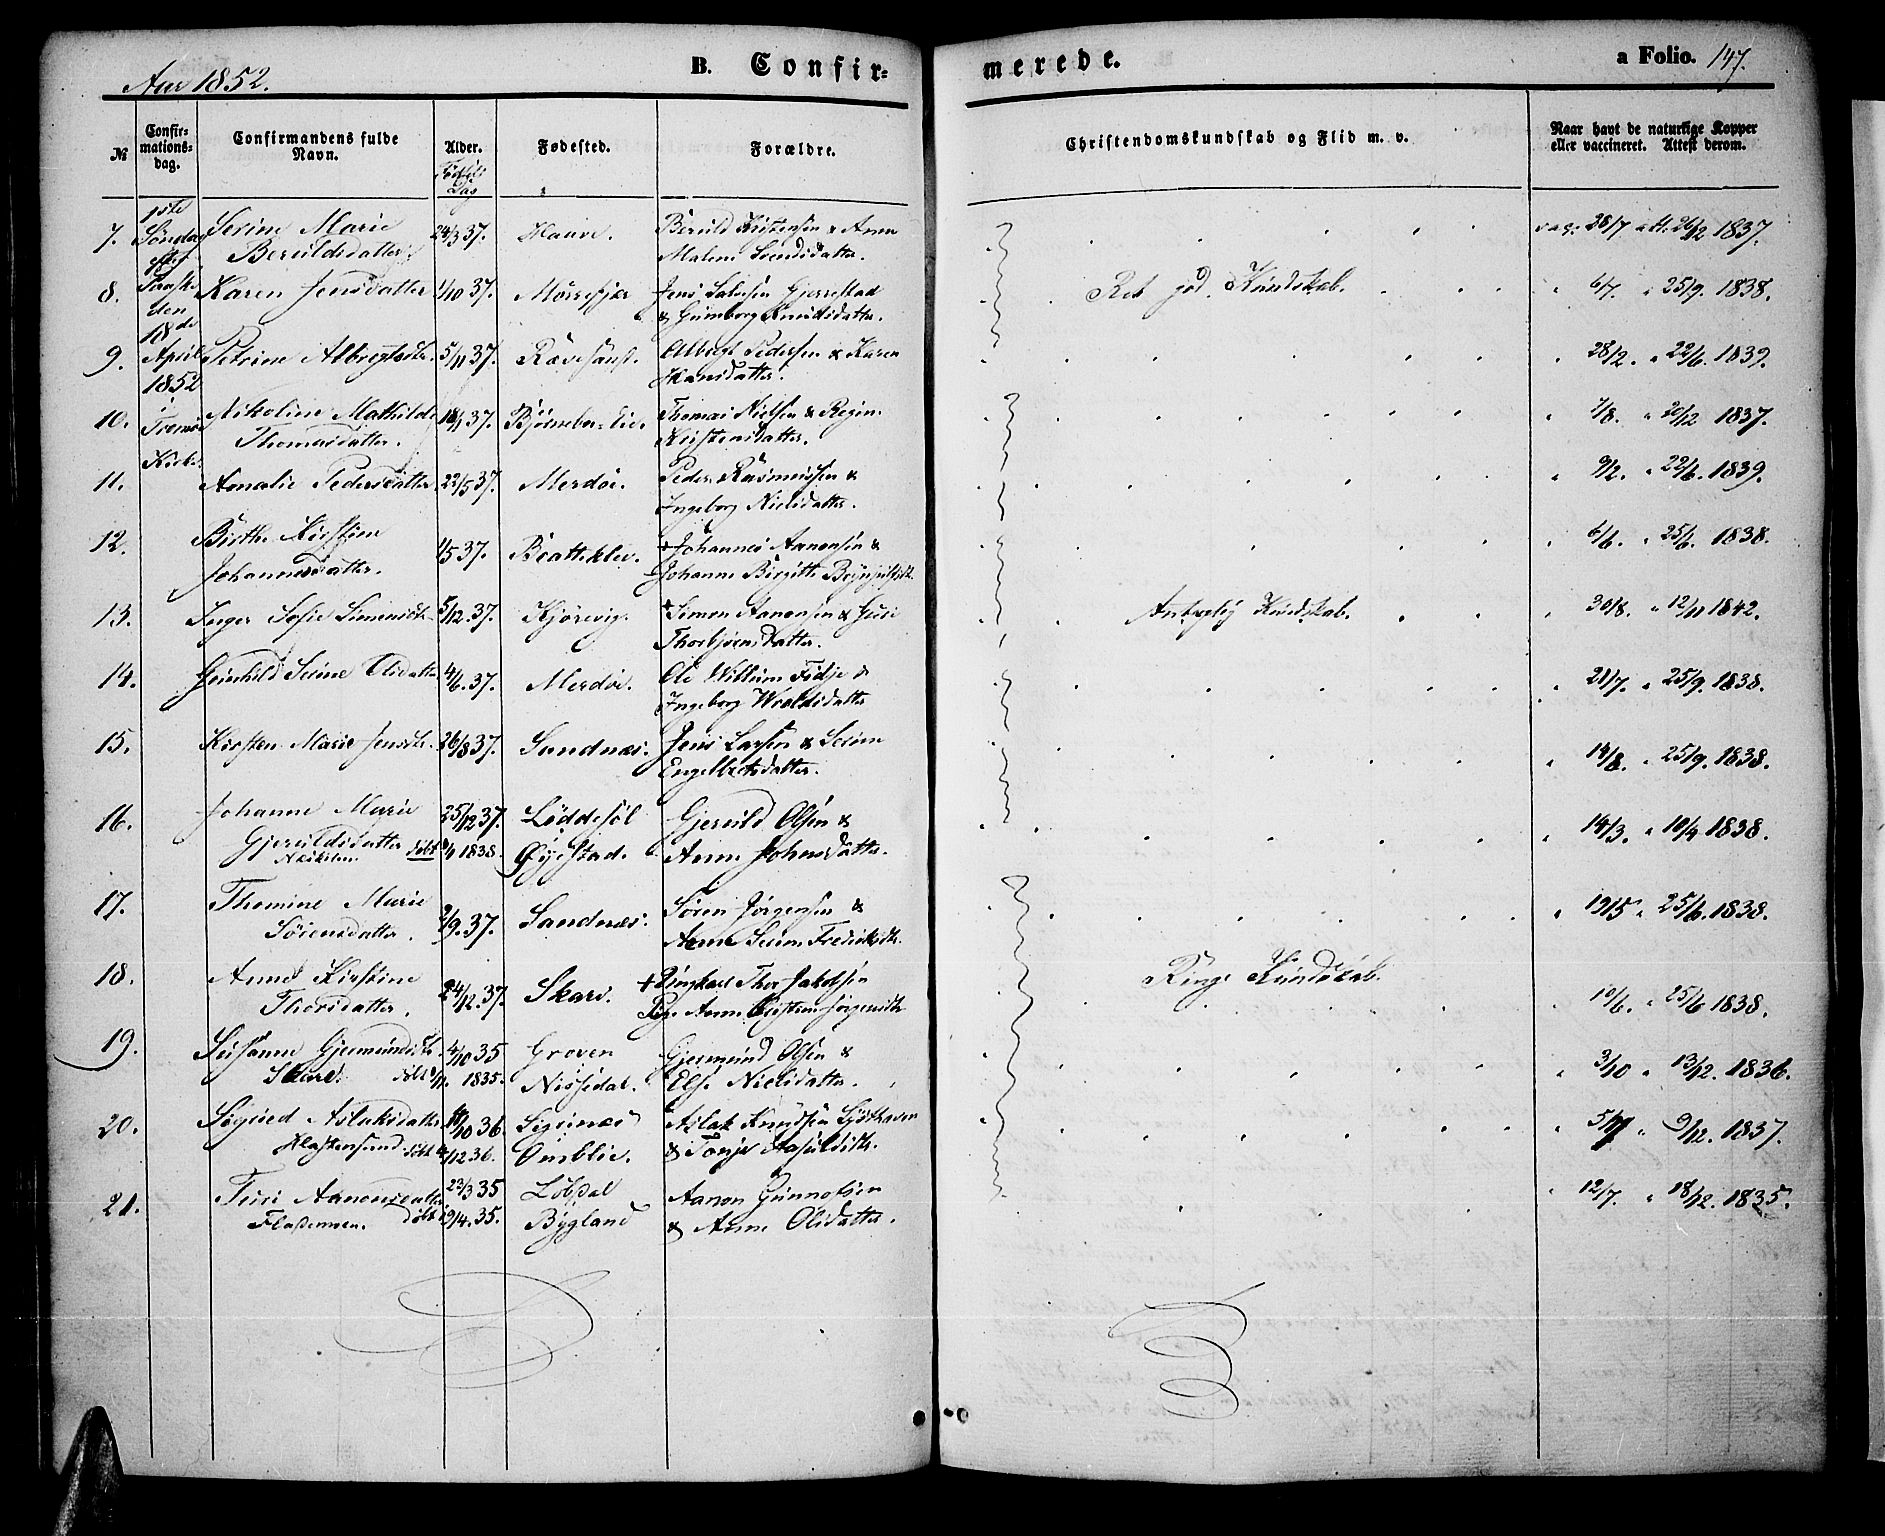 Aar 1852.
B. Confir=
merede.
a Folio. 147.
№
Confir=
mations=
dag.
Confirmandens fulde
Navn.
Alder.
Fødsels
Dag
Fødested.
Forældre.
Christendomskundskab og Flid m. v.
Naar havt de naturlige Kopper
eller vaccineret. Attest derom.
1ste
Søndag
efter
Paaske
den
18de
April
1852
i
Tromø
Kirke
7. Serine Marie 24/3 37. Hauve. Beruld Kristensen & Anne vac: 28/7 att. 26/12 1837.
Beruldsdatter. Malene Svendsdatter.
8. Karen Jensdatter 1/10 37. Mørrefjær Jens Salvesen Gjerrestad Ret god Kundskab. " 6/7. " 25/9. 1838.
& Gunborg Knudsdatter.
9. Petrine Albregtsdtr. 5/11 37. Rævesand. Albregt Pedersen & Karen " 28/2. " 22/6. 1839.
Hansdatter.
10. Nikoline Mathilde 18/1 37. Bjørneboe Thomas Nielsen & Regine " 7/8. " 20/12 1837.
Thomasdatter. Kristensdatter.
11. Amalie Pedersdatter 22/5 37. Merdøe. Peder Rasmussen & " 9/2. " 22/6. 1839.
Ingeborg Nielsdatter.
12. Birthe Kirstine 1/5 37. Bratteklev. + Johannes Aanonsen & " 6/6. " 25/6. 1838.
Johannesdatter. Johanne Birgitte Brynjulfsdtr.
13. Inger Sofie Simensdtr. 5/12. 37. Kjørvig. + Simon Aanonsen & Guri Antagelig Kundskab. " 30/8. " 12/11 1842.
Thorbjørnsdatter.
14. Gunhild Serine Olsdatter 4/6. 37. Merdøe. Ole Willum Fidje & " 21/7. " 25/9. 1838.
Ingeborg Wroldsdatter
15. Kirsten Marie Jensdtr. 26/8 37. Sandnæs. Jens Larsen & Serine " 14/8. " 25/9. 1838.
Engelbretsdatter.
16. Johanne Marie 25/12 37. Løddesøl Gjeruld Olsen & " 14/3. " 10/4 1838.
Gjeruldsdatter døbt 1838. Øyestad. Anne Johnsdatter.
17. Thomine Marie 2/9. 37. Sandnæs. Søren Jørgensen & " 19/5 " 25/6. 1838.
Sørensdatter. Anne Serine Fredriksdtr.
18. Anne Kirstine 24/12. 37. Skare. + Ungkarl Thor Jakobsen Ringe Kundskab.
Thorsdatter. Pige Anne Kirstine Jørgensdtr. " 10/6. " 25/6 1838.
19. Susanne Gjermundsdtr. 4/10 35 Groven Gjermund Olsen & " 3/10 " 13/12. 1836.
Skare. døbt 1835. Nissedal. Else Nielsdatter.
20. Sigried Aslaksdatter 10/10 36 Sigsnæs Aslak Knudsen " 9/12. 1837.
døbt /12 36. Omblie. & Tonje
21. Turi Aanonsdatter 23/3 35 Løbdal Aanon Gunnolsen " 12/7. " 18/12. 1835.
Fladennen. Døbt 19/4. 35. Bygland & Anne Olsdatter.